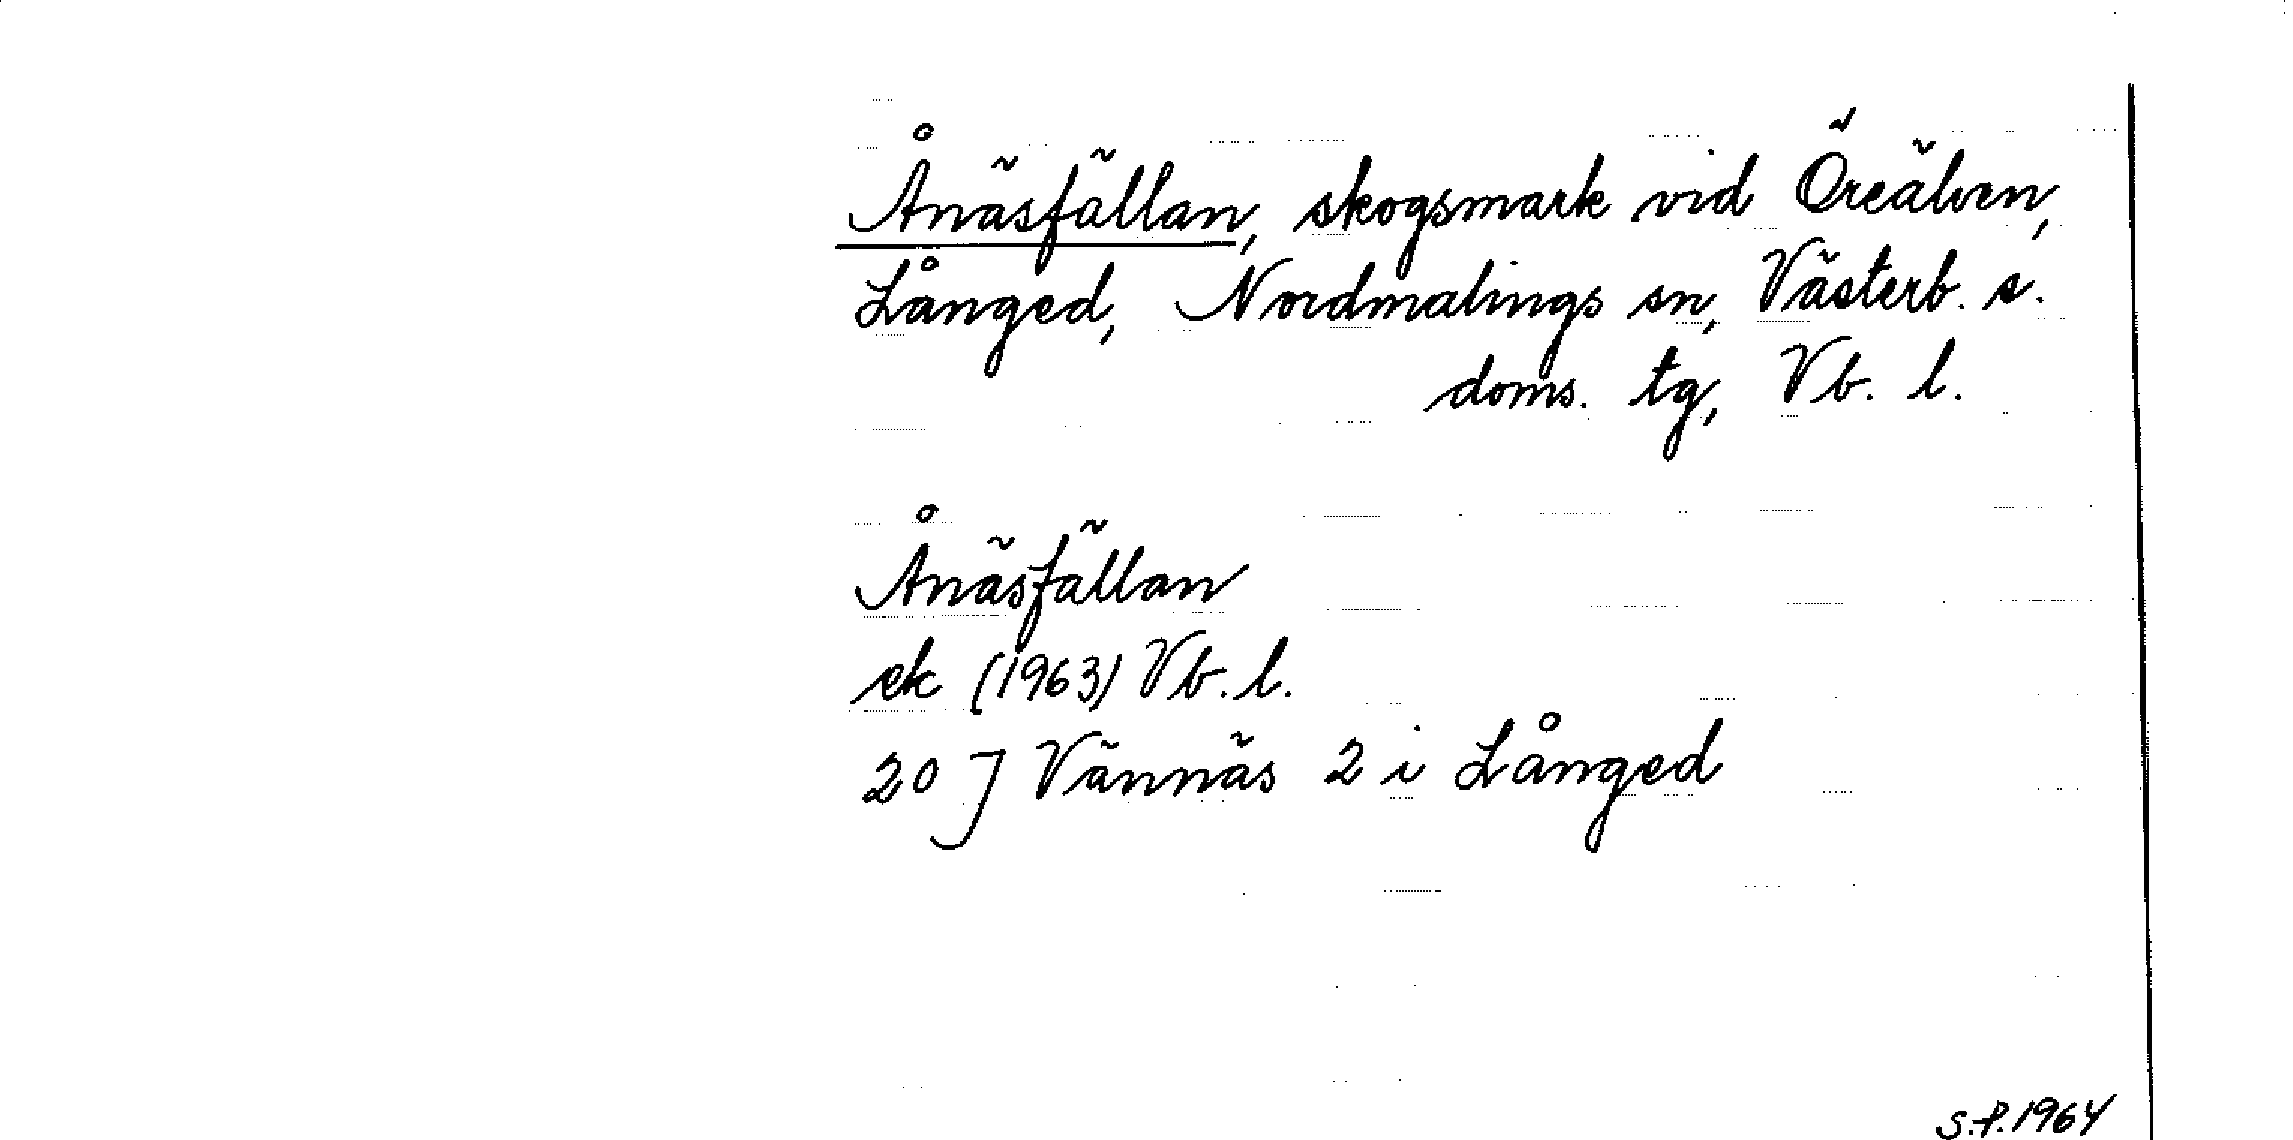 Ånäsfällan, skogsmark vid Öreälven,
Långed, Nordmalings sn, Västerb. s.
doms. tg, Vb. l.
Ånäsfällan
ek (1963) Vb. l.
20 J Vännäs 2 i Långed
S.P. 1964